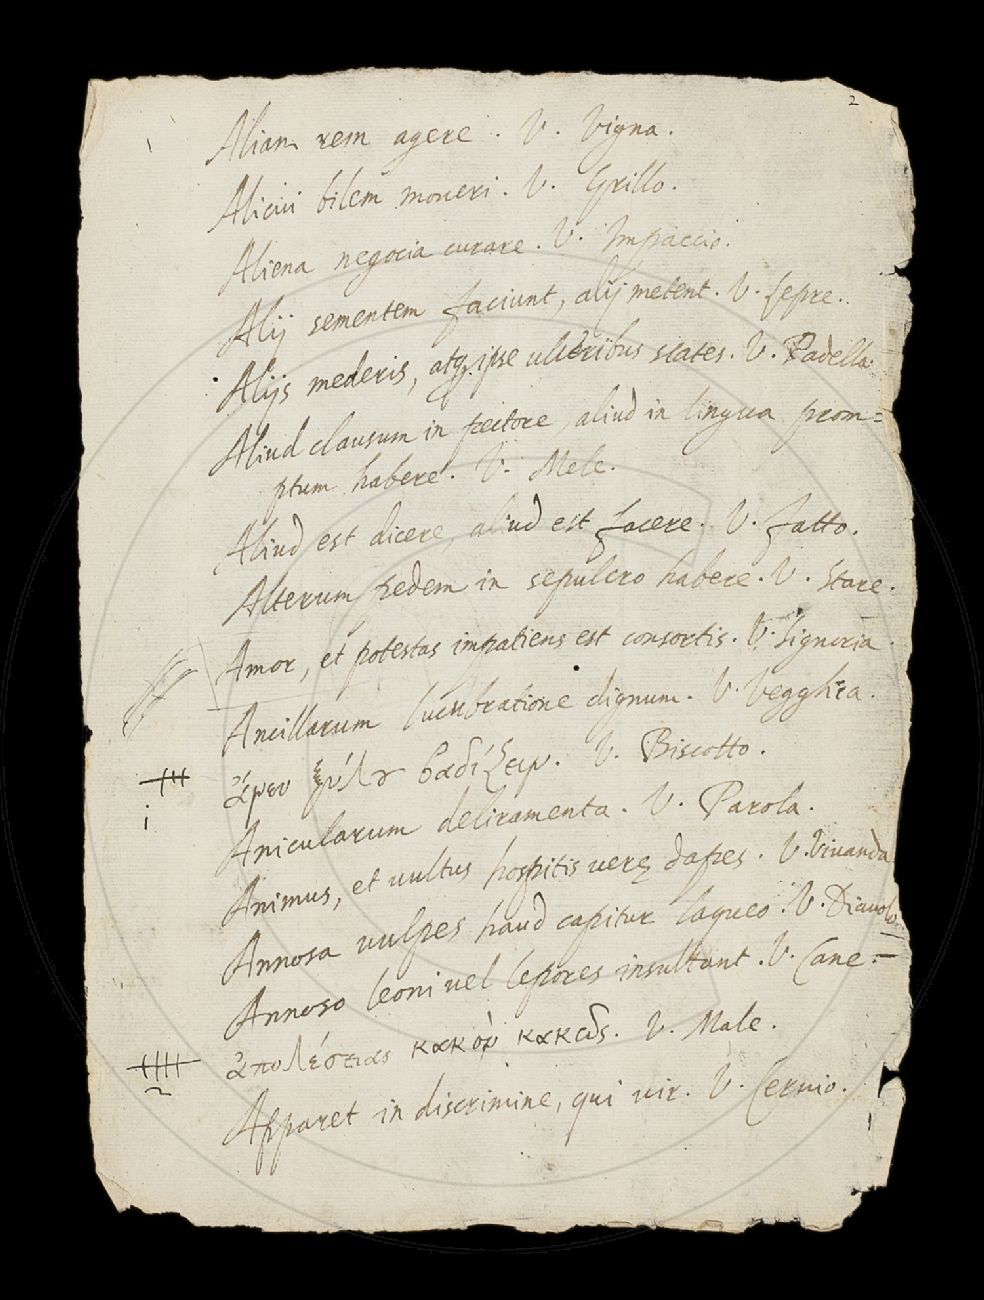 2
Aliam rem agere. V. Vigna.
Alicui bilem moueri. V. Grillo.
Aliena negocia curare. V. Impaccio.
Alij sementem faciunt, alij metent. V. Lepre.
Alijs mederis, atq; ipse ulceribus scates. V. Padella
Aliud clausum in pectore, aliud in lingua prom=
ptum habere. V. Mele.
Aliud est dicere, aliud est facere. V. fatto.
Alterum pedem in sepulcro habere. V. Stare.
Amor, et potestas impatiens est consortis. V. Signoria.
Ancillarum lucubratione dignum. V. Vegghia.
ἄνευ ξύλȣ βαδίζειν. V. Biscotto.
Anicularum deliramenta. V. Parola.
Animus, et uultus hospitis uerę dapes. V. Viuanda
Annosa uulpes haud capitur laqueo. V. Diauolo
Annoso leoni uel lepores insultant. V. Cane.
ἀπολέσειας κακὸν κακῶς. V. Male.
Apparet in discrimine, qui uir. V. Ceruio.